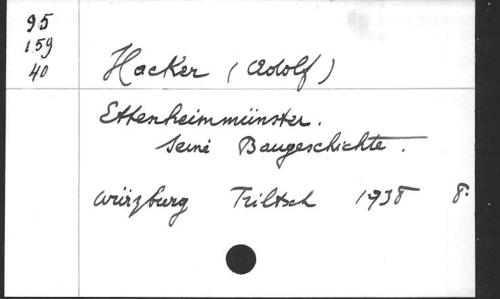 95
159
40
Hacker (Adolf)
Ettenheimmünster.
Seine Baugeschichte.
Würzburg Triltsch 1938 8.